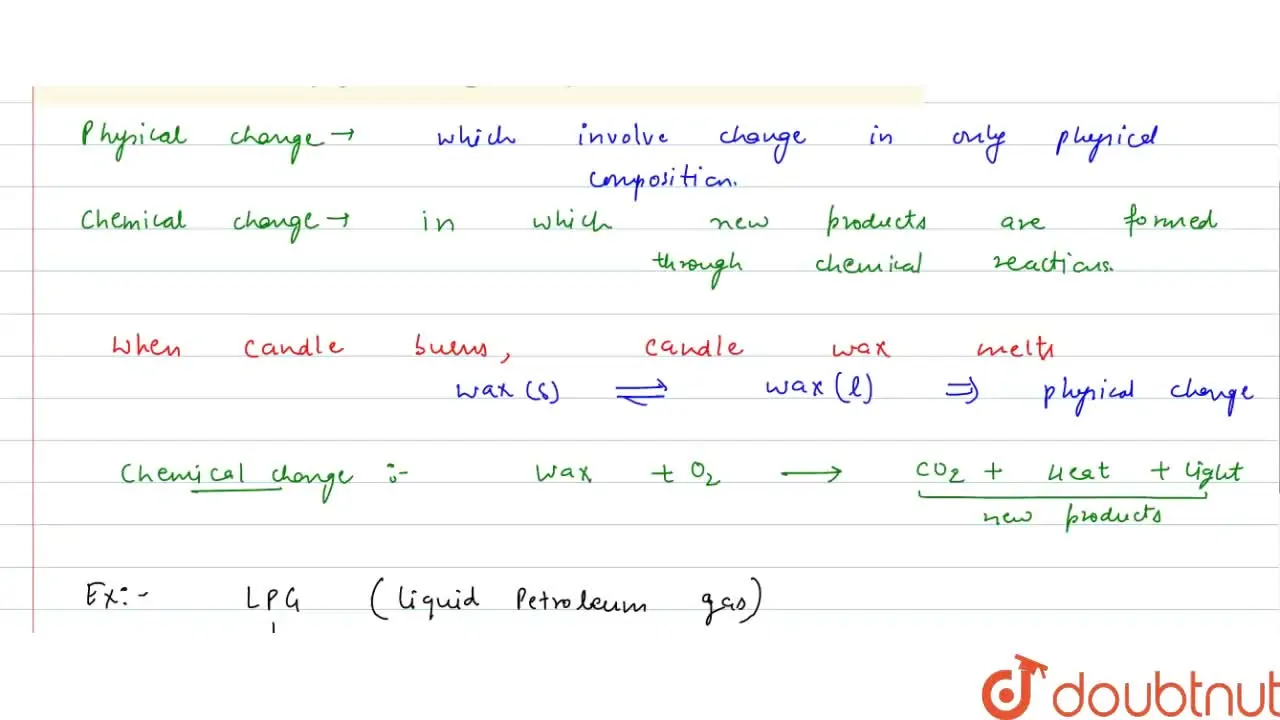 Physical change → which involve change in only physical
composition.
Chemical change → in which new products are formed
through chemical reactions.
When candle burns, candle wax melts
wax (s) ⇌ wax (l) ⇒ physical change
Chemical change :- Wax + O₂ → CO₂ + Heat + Light
new products
Ex:- LPG (Liquid Petroleum gas)
doubtnut